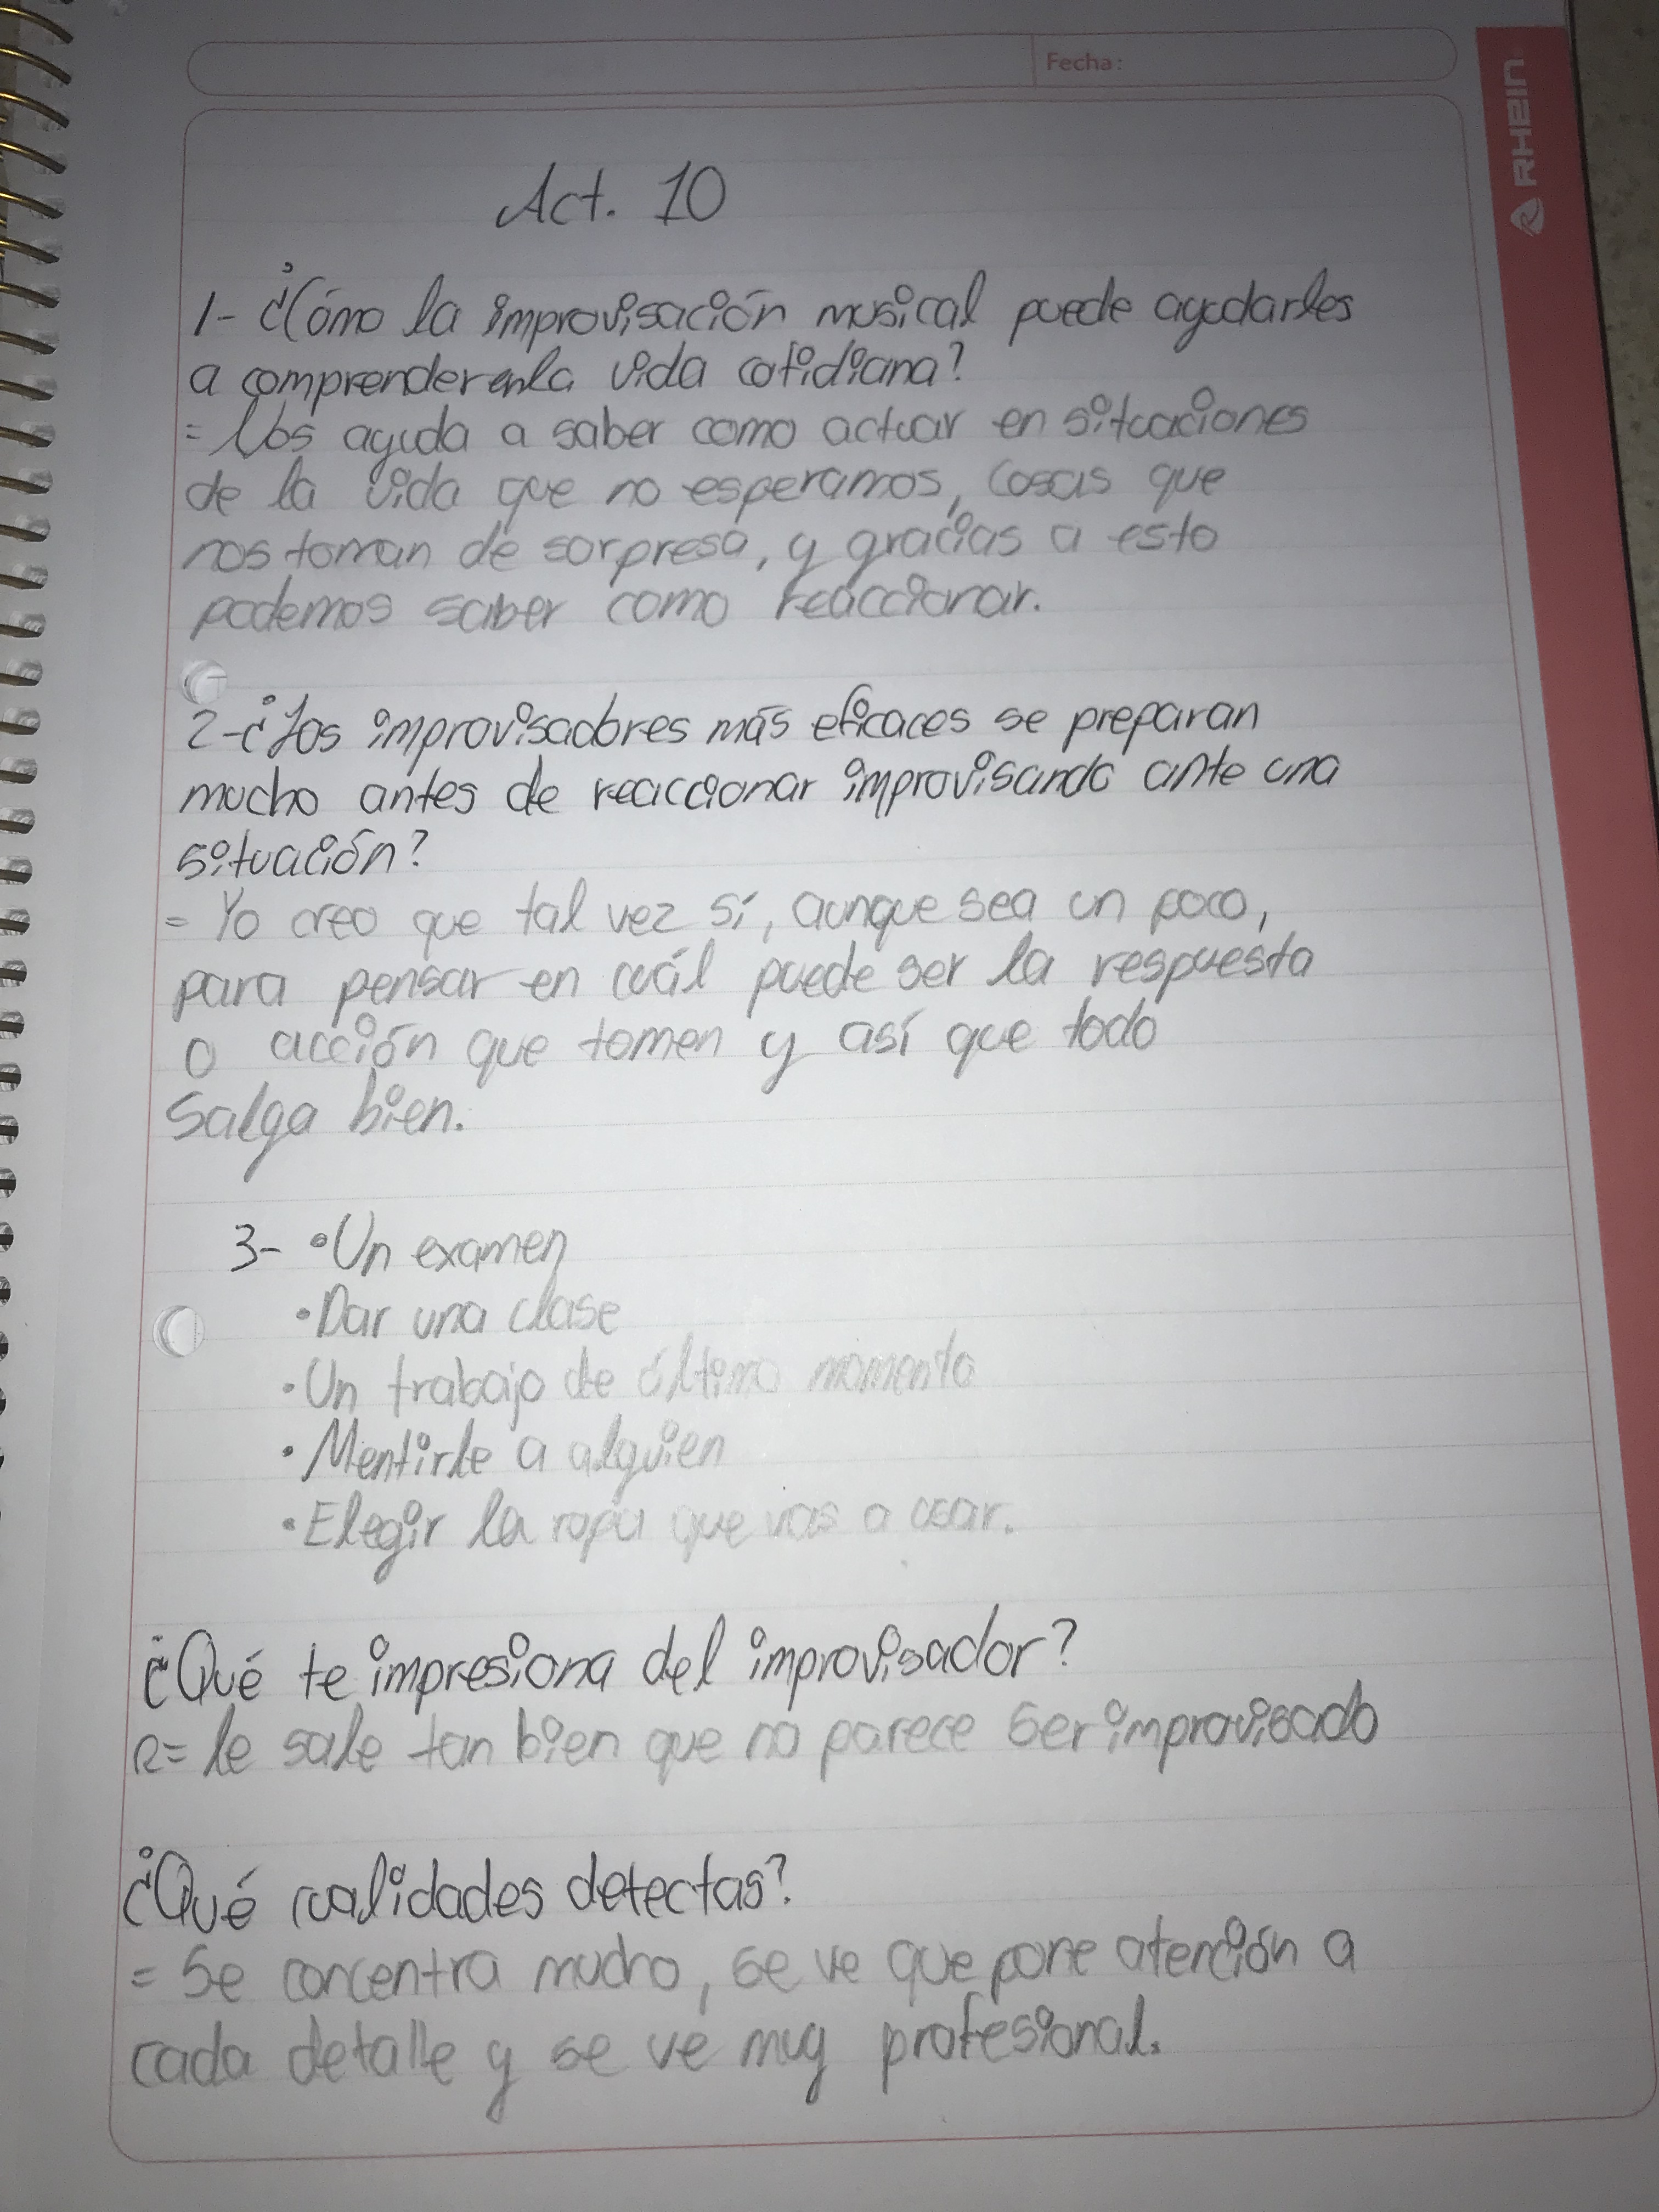 Fecha:
RHEIN
Act. 10
1- ¿Cómo la improvisación musical puede ayudarles
a comprender en la vida cotidiana?
= Nos ayuda a saber como actuar en situaciones
de la vida que no esperamos, cosas que
nos toman de sorpresa, y gracias a esto
podemos saber como reaccionar.
2-¿Los improvisadores más eficaces se preparan
mucho antes de reaccionar improvisando ante una
situación?
= Yo creo que tal vez sí, aunque sea un poco,
para pensar en cuál puede ser la respuesta
o acción que tomen y así que todo
salga bien.
3- •Un examen
•Dar una clase
•Un trabajo de último momento
•Mentirle a alguien
•Elegir la ropa que vas a usar.
¿Qué te impresiona del improvisador?
R= le sale tan bien que no parece ser improvisado
¿Qué cualidades detectas?
= Se concentra mucho, se ve que pone atención a
cada detalle y se ve muy profesional.